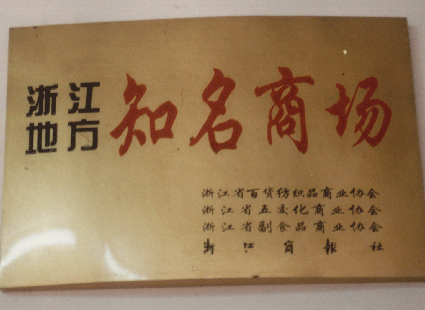 浙江
地方
知名商场
浙江省百货纺织品商业协会
浙江省五交化商业协会
浙江省副食品商业协会
浙江商报社